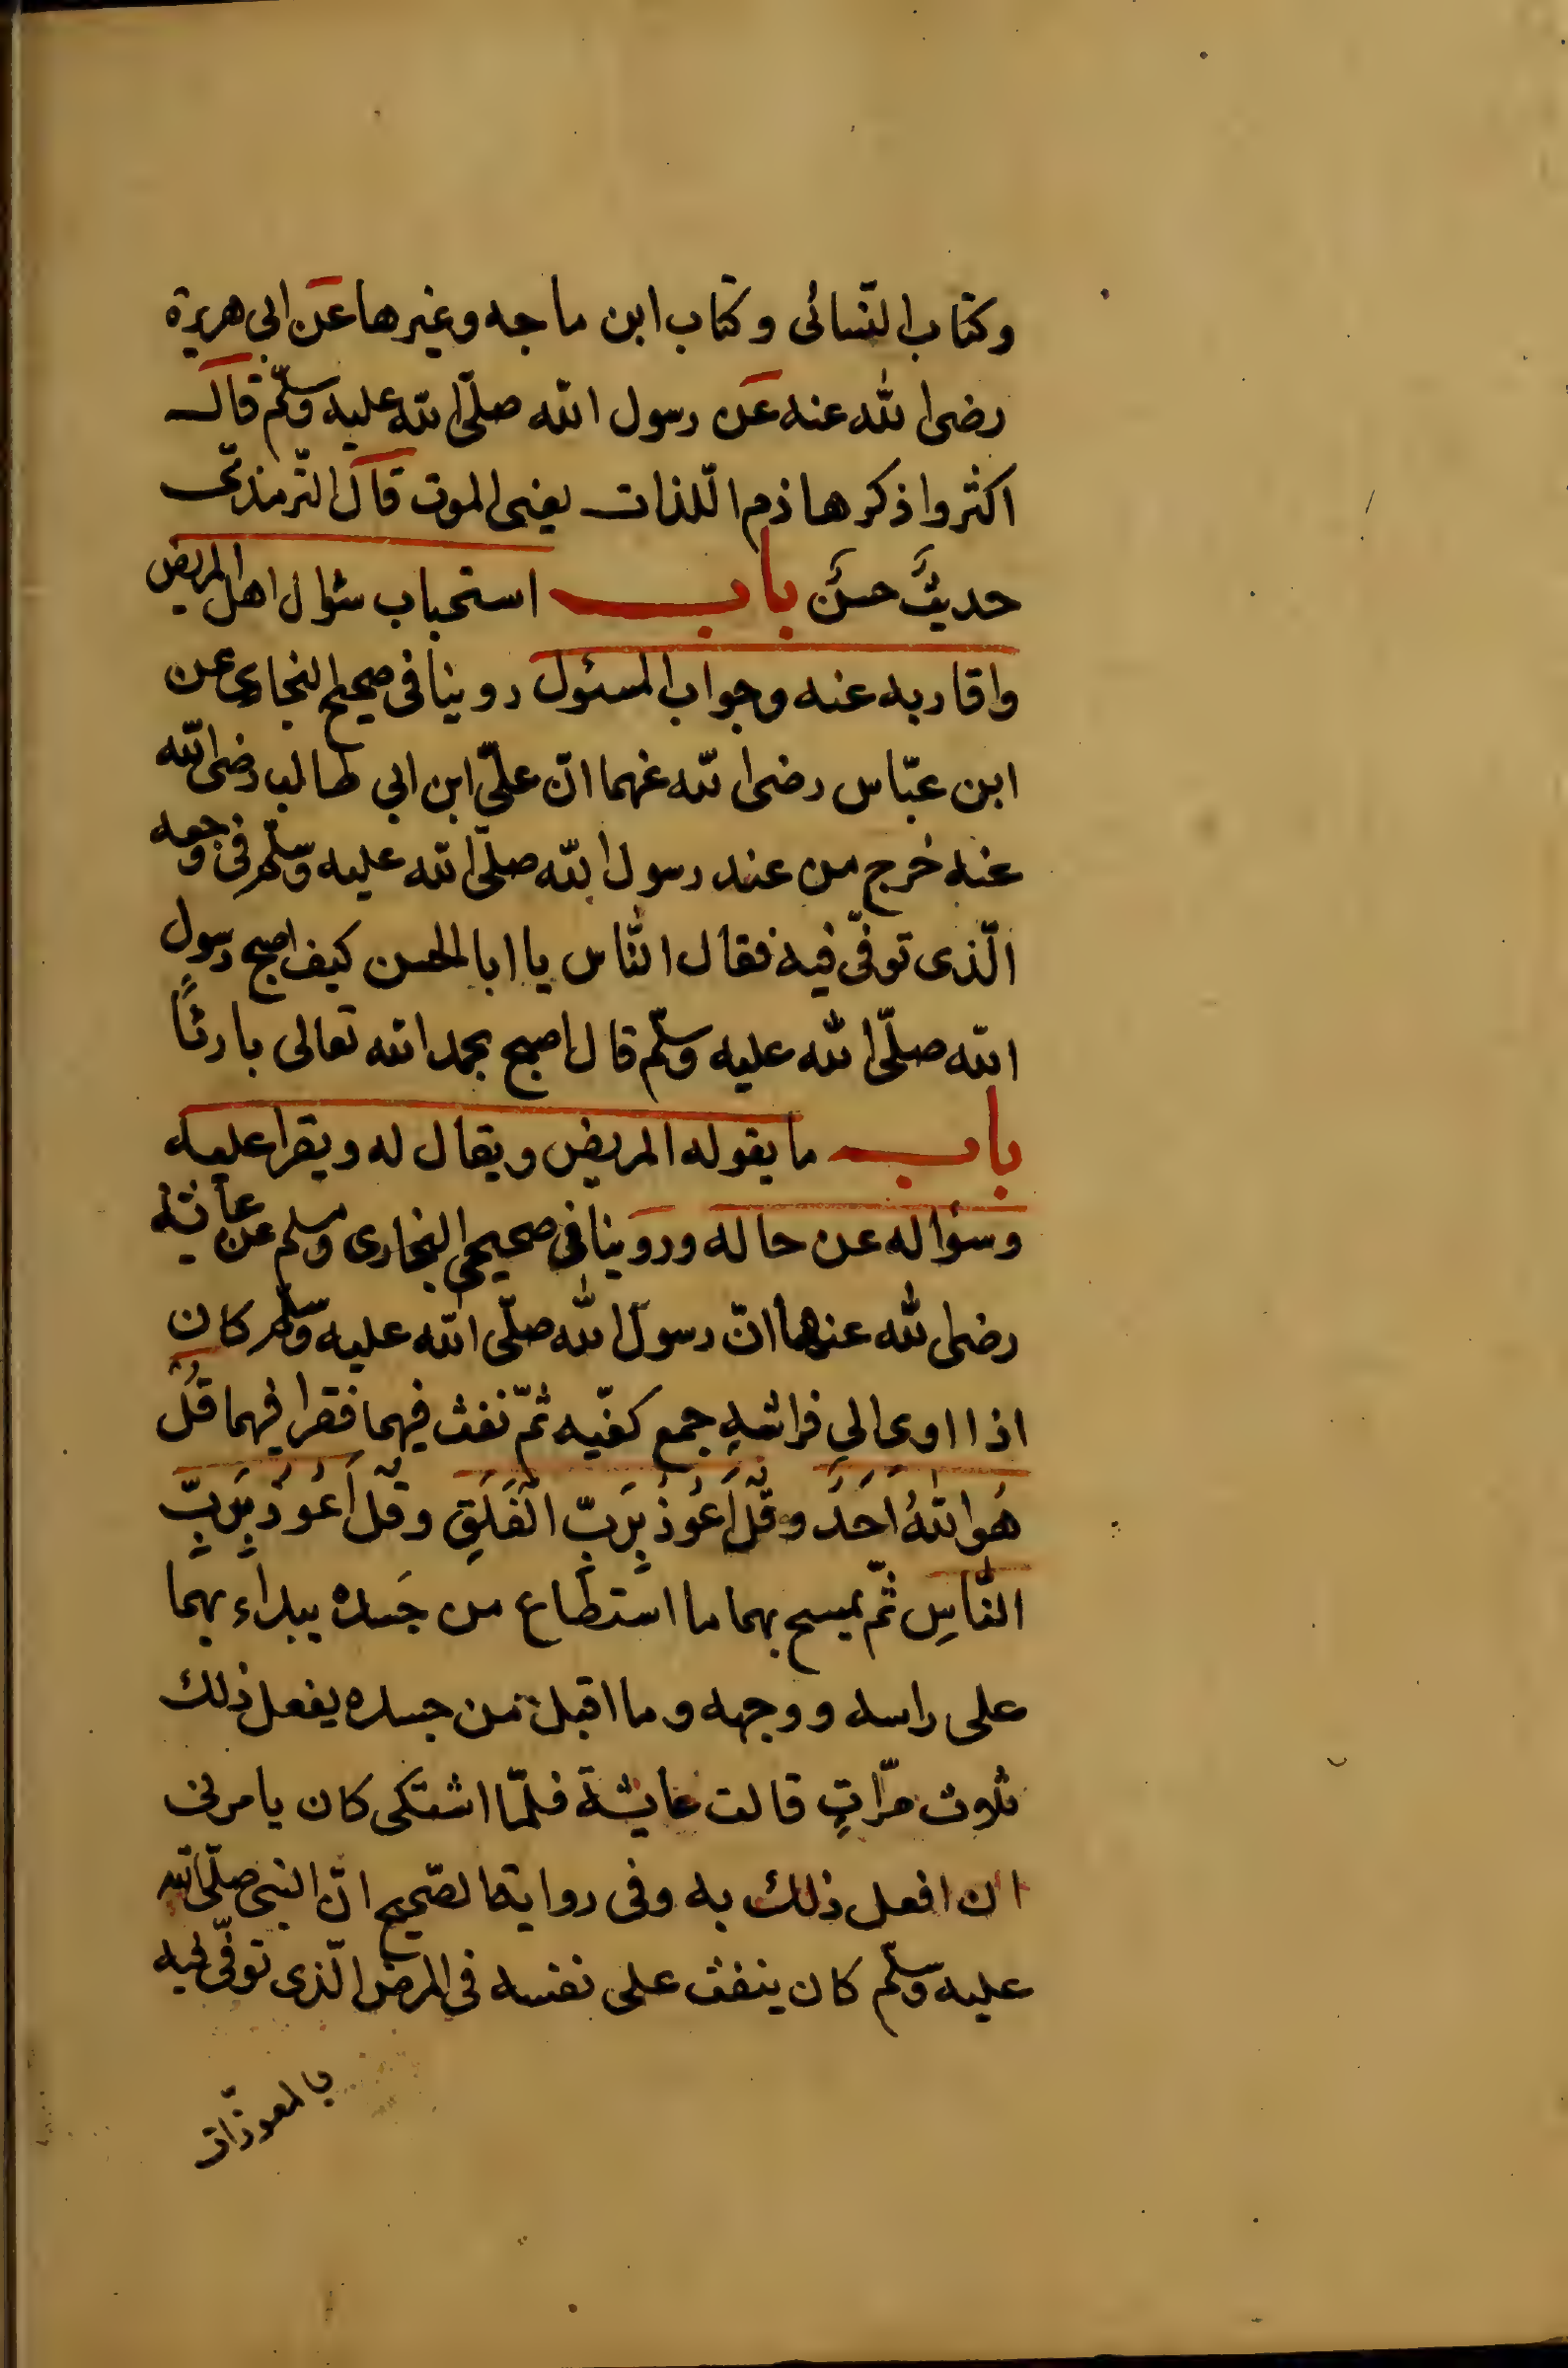 وكتاب النّسائى وكتاب ابن ماجه وغيرها عَن ابى هريرة
رضى الله عنه عَن رسول الله صلّى الله عليه وسلّم قال
اكثروا ذكر هاذم اللّذات يعنى الموت قال التّرمذىّ
حديثٌ حسنٌ باب استحباب سؤال اهل المريض
واقاربه عنه وجواب المسئول روينا فى صحيح البخارى عن
ابن عبّاس رضى الله عنهما انّ علىّ ابن ابى طالب رضى الله
عنه خرج من عند رسول الله صلّى الله عليه وسلّم فى وجعه
الّذى توفّى فيه فقال النّاس يا ابا الحسن كيف اصبح رسول
الله صلّى الله عليه وسلّم قال اصبح بحمد الله تعالى بارئًا
باب ما يقوله المريض ويقال له ويقرا عليه
وسؤاله عن حاله وروينا فى صحيحى البخارى ومسلم عن عائشة
رضى الله عنها انّ رسول الله صلّى الله عليه وسلّم كان
اذا اوى الى فراشهِ جمع كفّيه ثمّ نفث فيهما فقرا فيهما قُلْ
هُوَ اللهُ اَحَدٌ وقُلْ اَعُوذُ بِرَبِّ الْفَلَقِ وقُلْ اَعُوذُ بِرَبِّ
النّاسِ ثمّ يمسح بهما ما استطاع من جَسده يبداء بهما
على راسه ووجهه وما اقبل من جسده يفعل ذلك
ثلاث مرّاتٍ قالت عايشة فلمّا اشتكى كان يامرنى
ان افعل ذلك به وفى رواية الصّحيح انّ النبى صلّى الله
عليه وسلّم كان ينفث على نفسه فى المرض الّذى توفّى فيه
بالمعوذّات